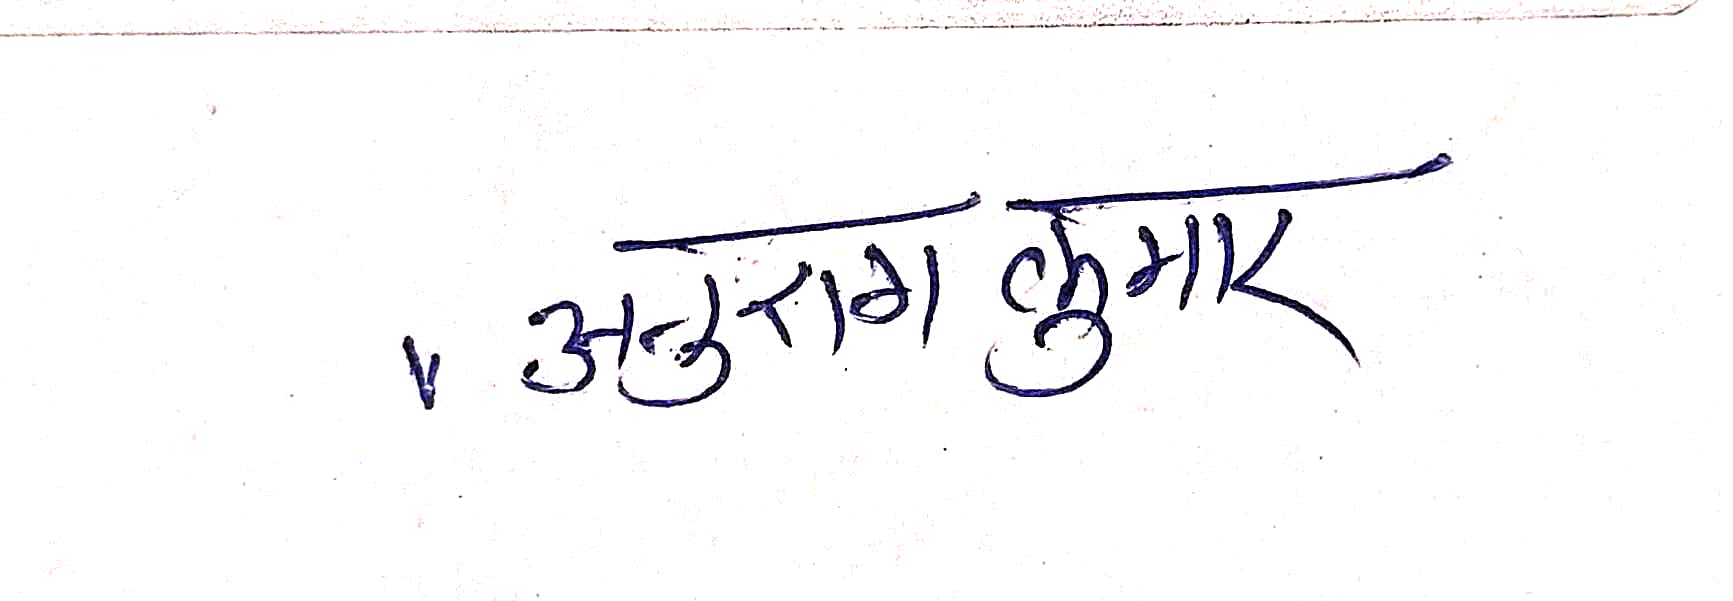 अनुराग कुमार